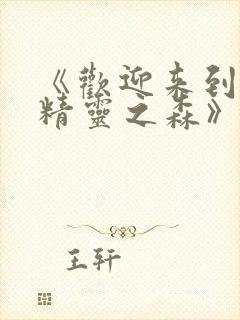 《歡迎来到
精靈之森》
王轩